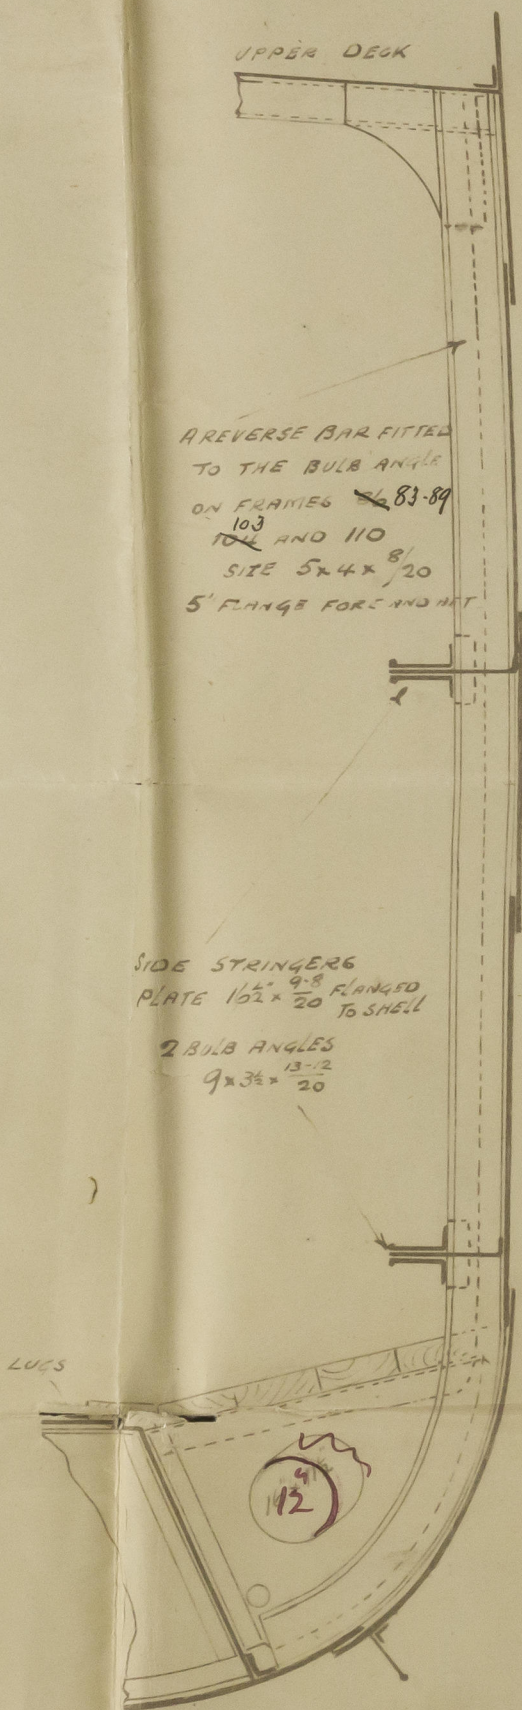 UPPER DECK
A REVERSE BAR FITTED
TO THE BULB ANGLE
ON FRAMES 86 83-89
103
104 AND 110
SIZE 5 x 4 x 8/20
5' FLANGE FORE AND AFT
SIDE STRINGERS
PLATE 16½" x 9-8/20 FLANGED
TO SHELL
2 BULB ANGLES
9 x 3½ x 13-12/20
LUGS
12"